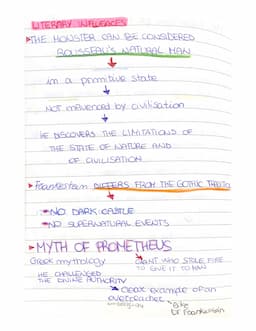 LITERARY INFLUENCES
THE MONSTER CAN BE CONSIDERED
ROUSSEAU'S NATURAL MAN
in a primitive state
NOT influenced by civilisation
HE DISCOVERS THE LIMITATIONS OF
THE STATE OF NATURE AND
OF CIVILISATION
Frankenstein DIFFERS FROM THE GOTHIC
NO DARK CASTLE
NO SUPERNATURAL EVENTS
MYTH OF PROMETHEUS
Greek mythology
GIANT WHO STOLE FIRE
TO GIVE IT TO MAN
HE CHALLENGED
THE DIVINE AUTHORITY
clear example of an
overreacher
like
Dr Frankenstein